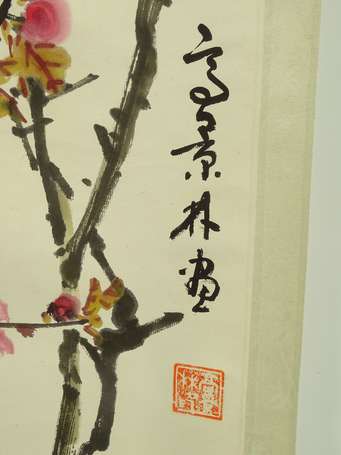 高景林畫